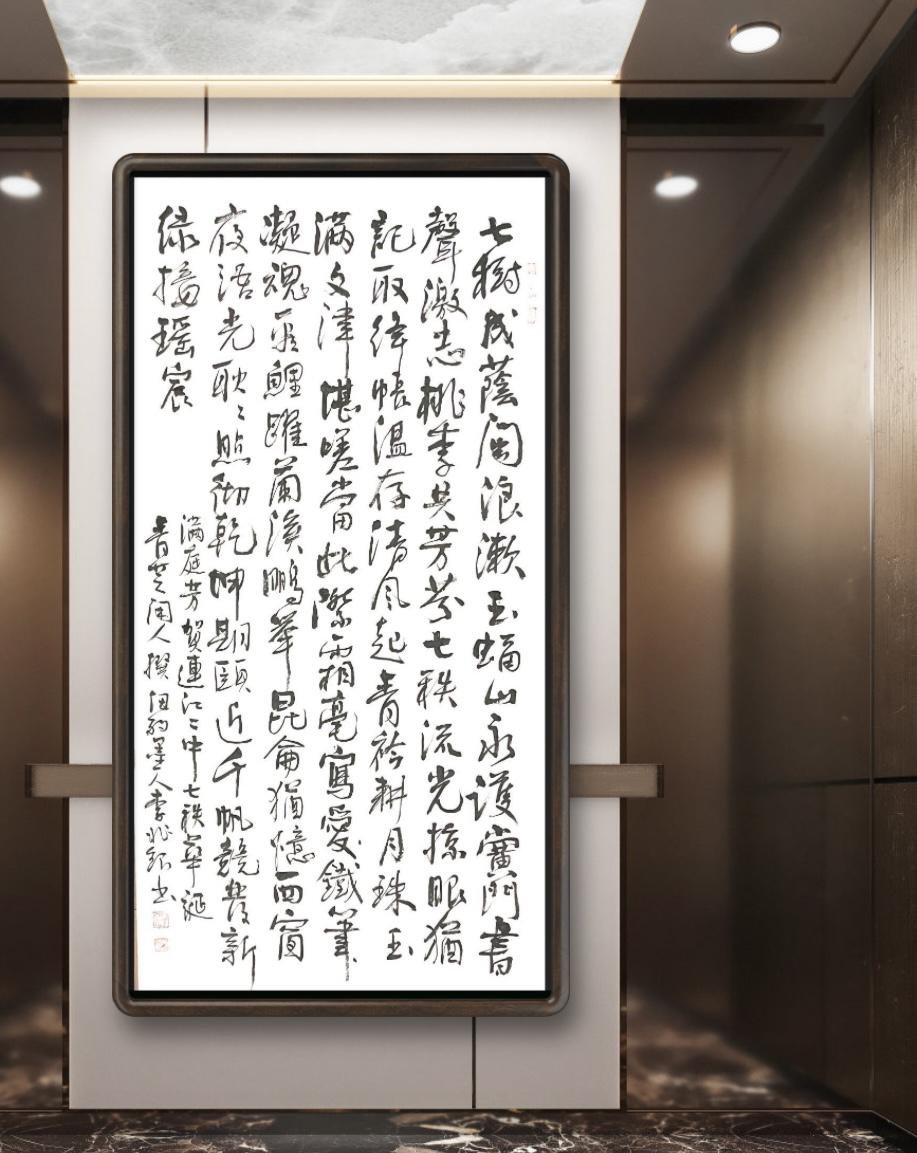 七樹成蔭閩浪漱玉蝠山永護黌門書
聲激志桃李共芳芬七秩流光掠眼猶
記取絳帳溫存清風起青衿耕月珠玉
滿文津堪嗟當此際霜毫寫愛鐵筆
凝魂鯉躍蘭溪鵬舉昆侖猶憶西窗
夜語光耿〻照徹乾坤期頤近千帆競發新
綠接瑤宸
滿庭芳賀連江二中七秩華誕
青芝閑人撰紐約墨人李兆書